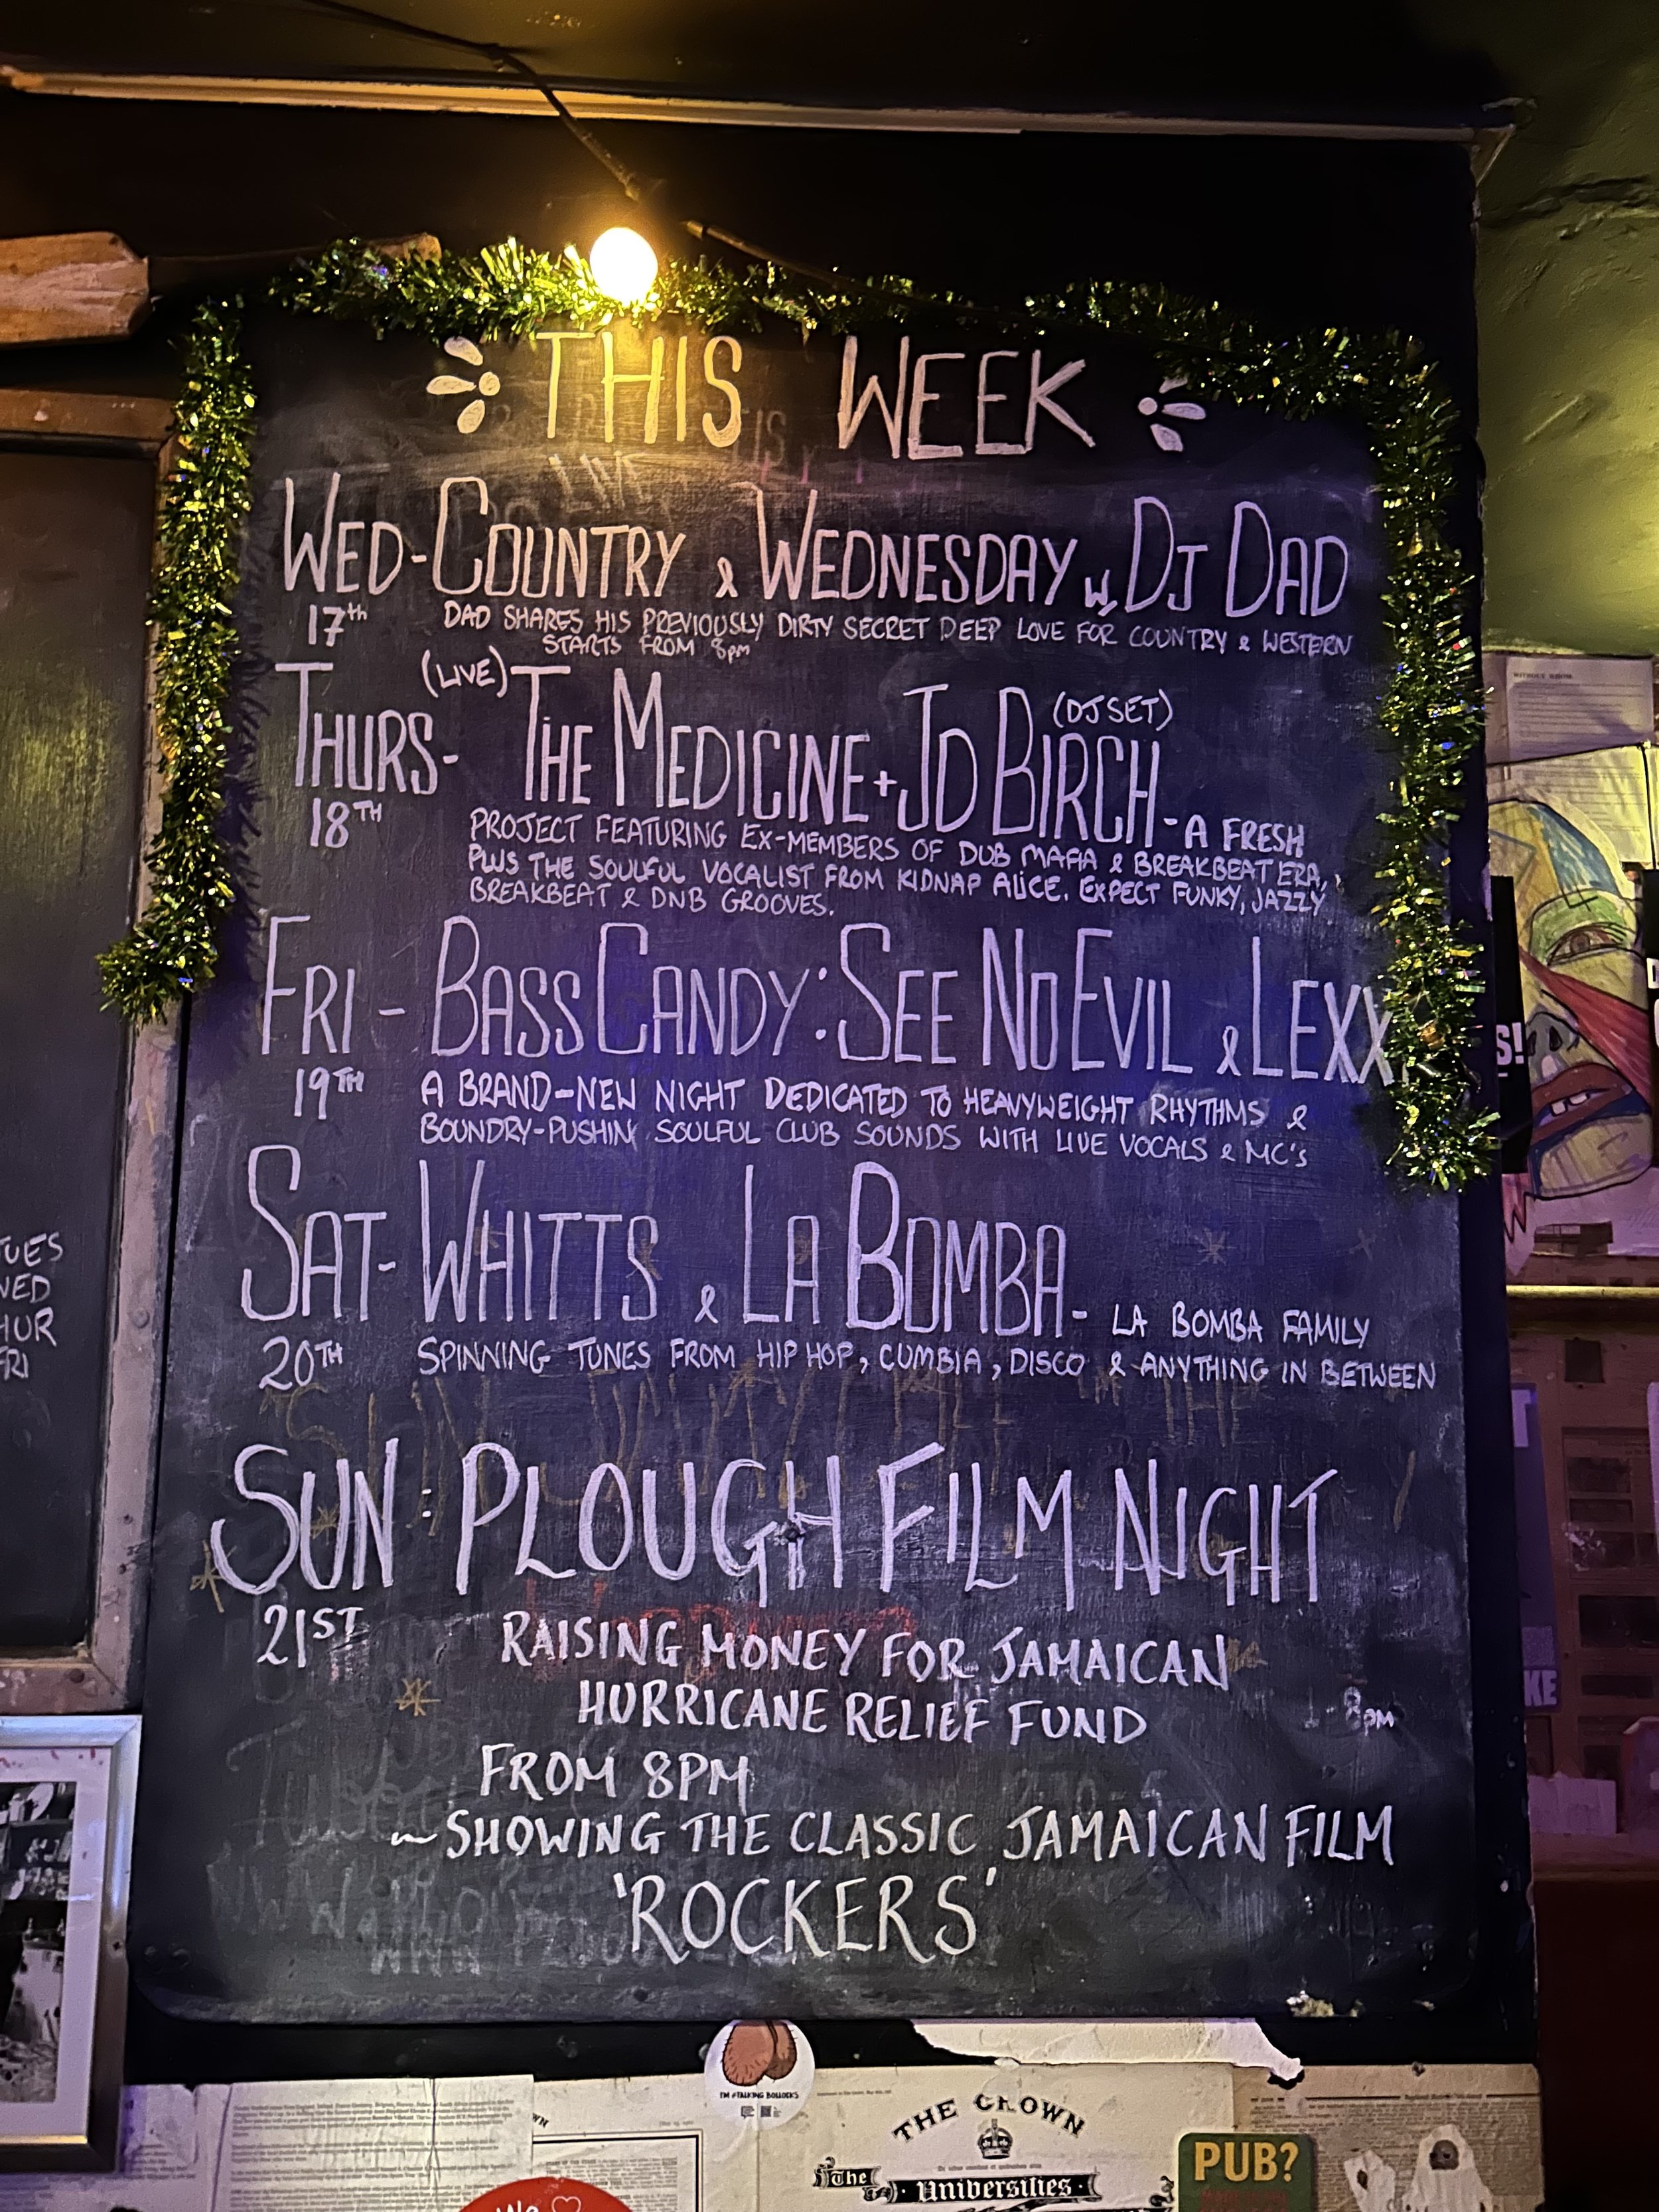 THIS WEEK
WED - COUNTRY & WEDNESDAY w/ DJ DAD
17th DAD SHARES HIS PREVIOUSLY DIRTY SECRET DEEP LOVE FOR COUNTRY & WESTERN
STARTS FROM 8pm
THURS - (LIVE) THE MEDICINE + JD BIRCH (DJ SET) - A FRESH
18TH PROJECT FEATURING EX-MEMBERS OF DUB MAFIA & BREAKBEAT ERA,
PLUS THE SOULFUL VOCALIST FROM KIDNAP ALICE. EXPECT FUNKY, JAZZY
BREAKBEAT & DNB GROOVES.
FRI - BASS CANDY: SEE NO EVIL & LEXX
19TH A BRAND-NEW NIGHT DEDICATED TO HEAVYWEIGHT RHYTHMS &
BOUNDRY-PUSHIN SOULFUL CLUB SOUNDS WITH LIVE VOCALS & MC's
SAT - WHITTS & LA BOMBA - LA BOMBA FAMILY
20TH SPINNING TUNES FROM HIP HOP, CUMBIA, DISCO & ANYTHING IN BETWEEN
SUN: PLOUGH FILM NIGHT
21ST RAISING MONEY FOR JAMAICAN
HURRICANE RELIEF FUND
8PM
FROM 8PM
~ SHOWING THE CLASSIC JAMAICAN FILM
'ROCKERS'
TUES
WED
THUR
FRI
I'M #TALKING BOLLOCKS
THE CROWN
The Universities
PUB?